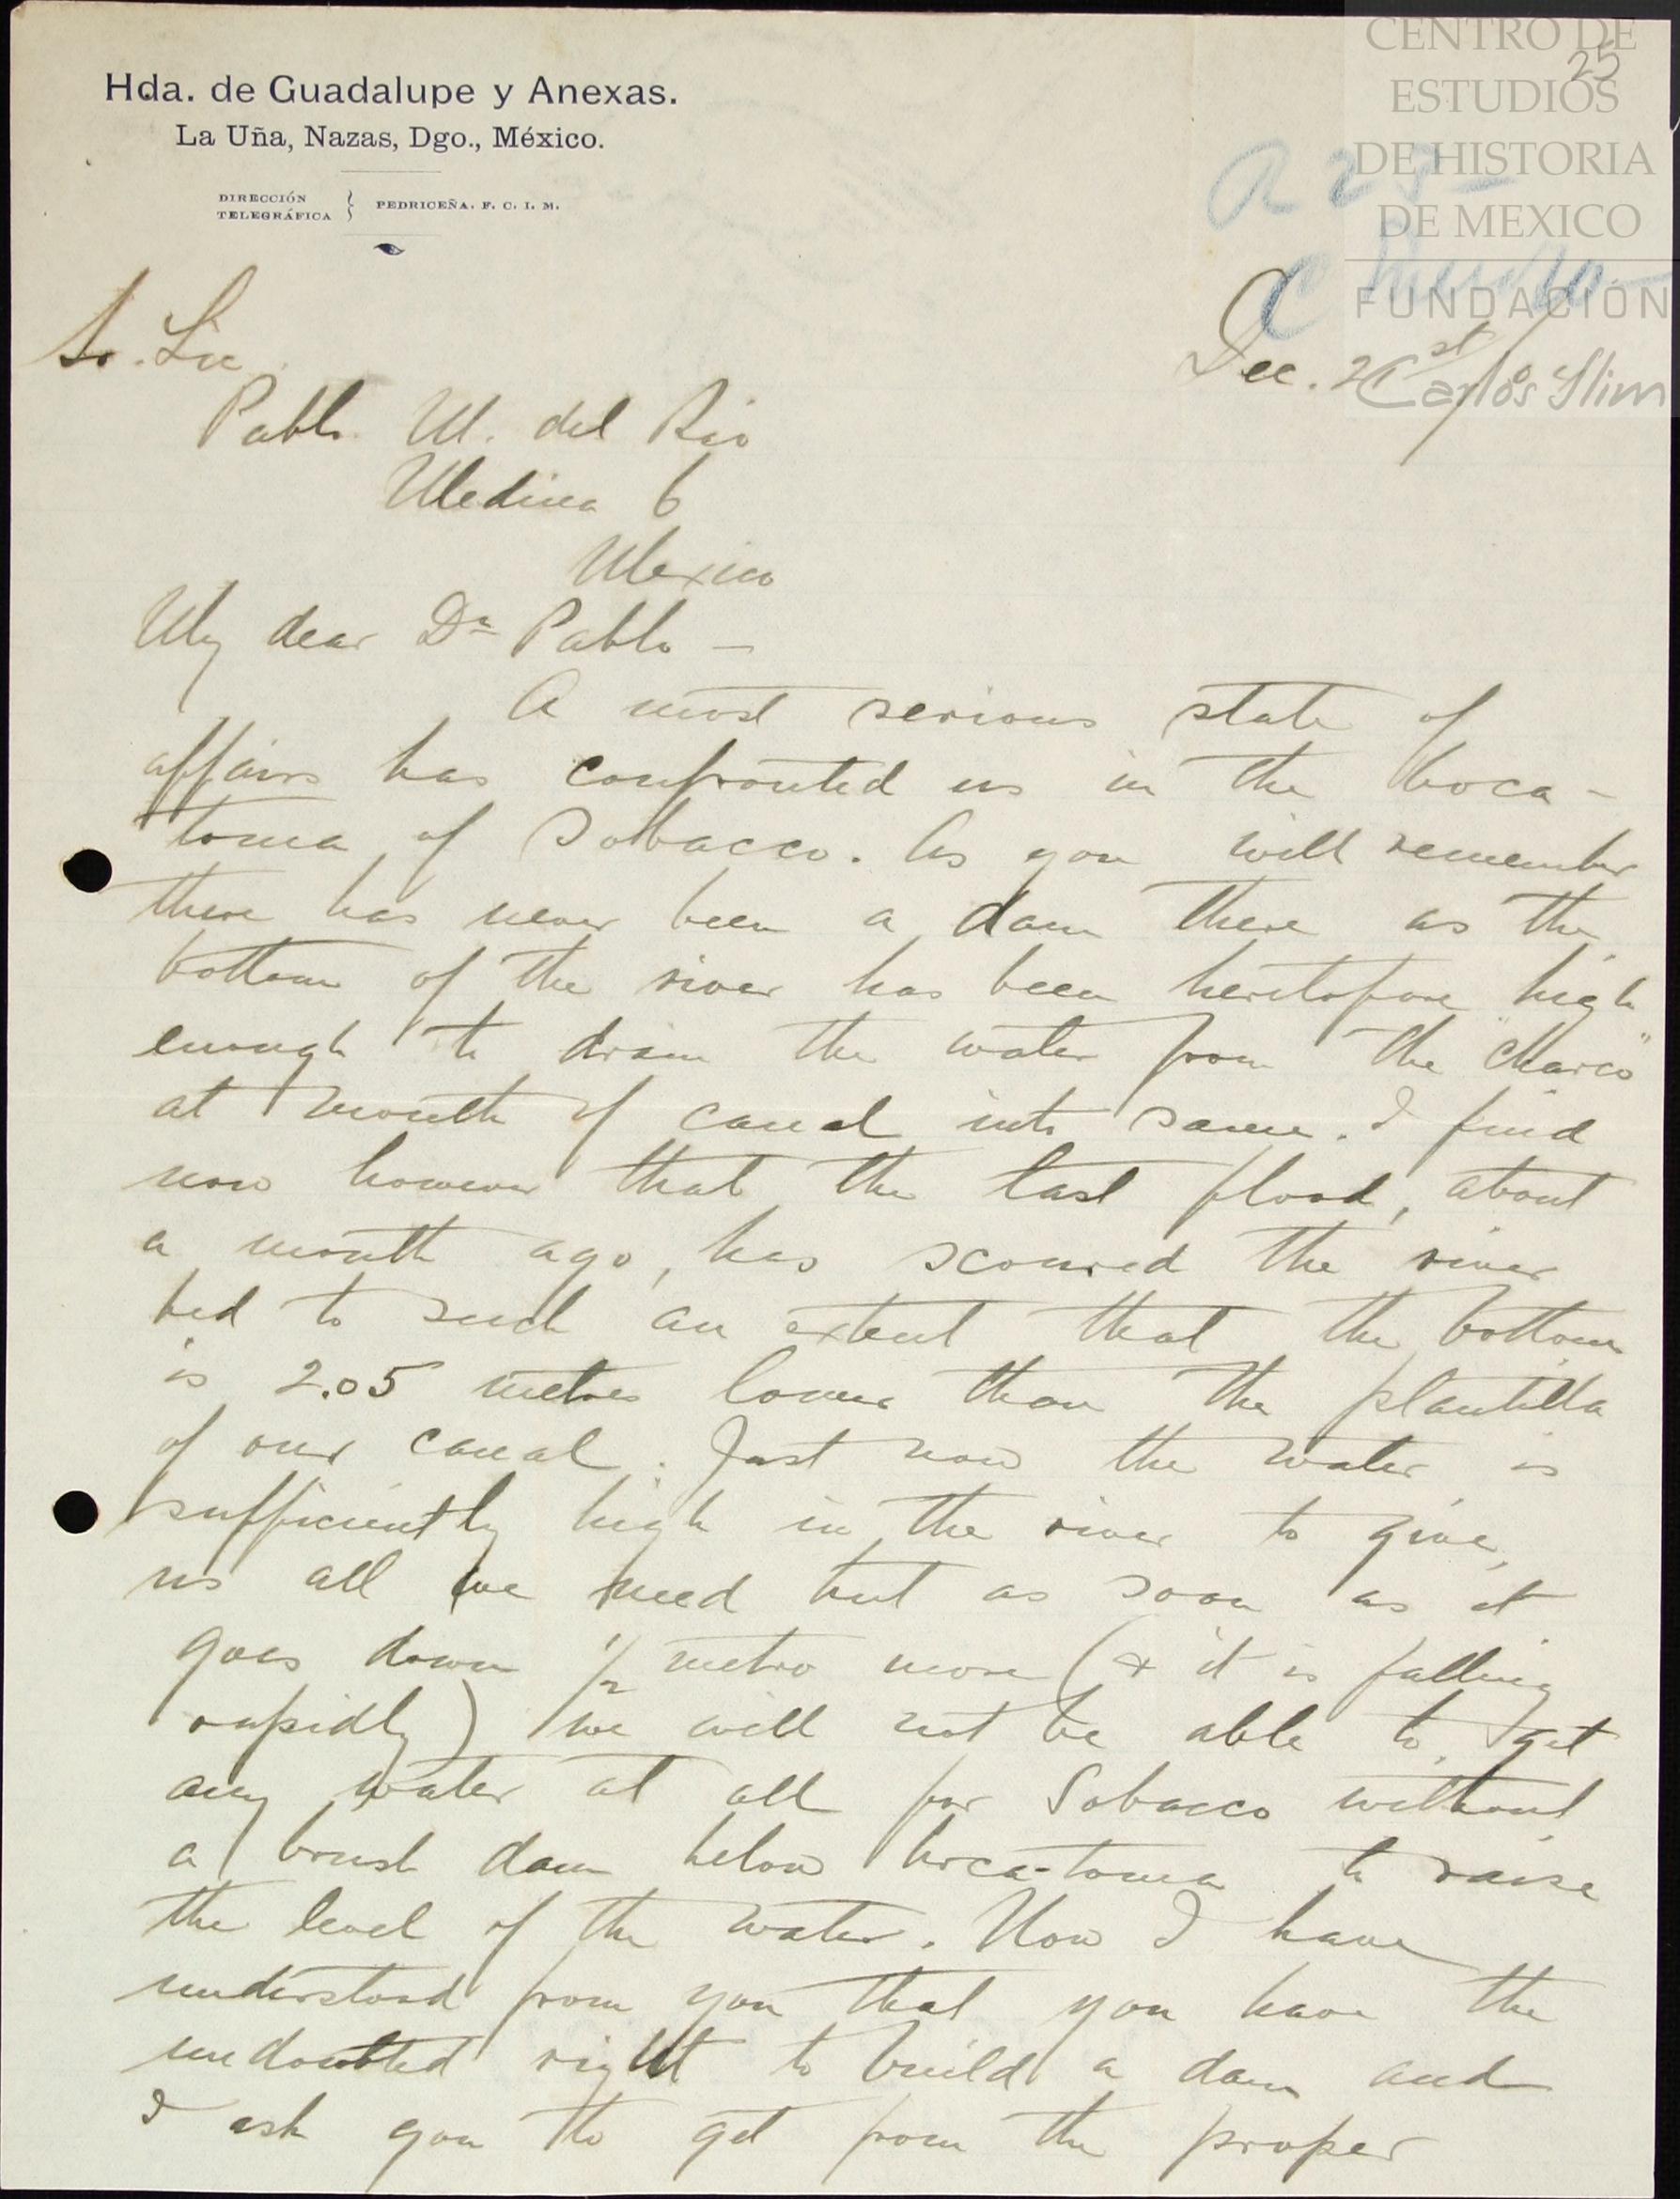 CENTRO DE
ESTUDIOS
DE HISTORIA
DE MEXICO
FUNDACIÓN
Carlos Slim
25
Hda. de Guadalupe y Anexas.
La Uña, Nazas, Dgo., México.
DIRECCIÓN TELEGRÁFICA } PEDRICEÑA. F. C. I. M.
Dec. 21st/
Sr. Lic.
Pablo M. del Rio
Medina 6
Mexico
My dear Dn Pablo —
A most serious state of
affairs has confronted us in the boca-
toma of Sobacco. As you will remember
there has never been a dam there as the
bottom of the river has been heretofore high
enough to drain the water from the "Charco"
at mouth of canal into same. I find
now however that the last flood, about
a month ago, has scoured the river
bed to such an extent that the bottom
is 2.05 metres lower than the plantilla
of our canal. Just now the water is
sufficiently high in the river to give
us all we need but as soon as it
goes down 1/2 metro more (& it is falling
rapidly) we will not be able to get
any water at all for Sobacco without
a brush dam below boca-toma to raise
the level of the water. Now I have
understood from you that you have the
undoubted right to build a dam and
I ask you to get from the proper